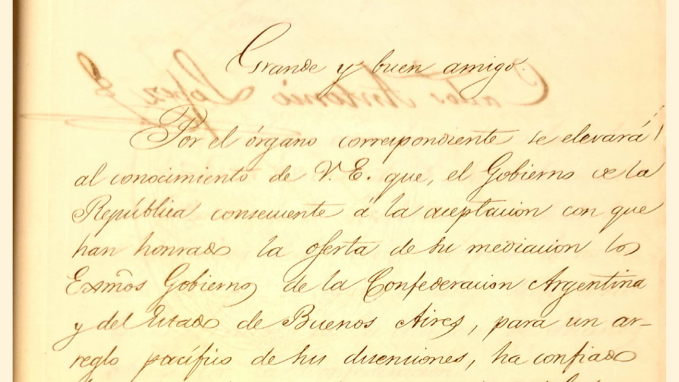 Grande y buen amigo.
Carlos Antonio Lopez
Por el órgano correspondiente se elevará
al conocimiento de V. E. que, el Gobierno de la
República consecuente á la aceptacion con que
han honrado la oferta de su mediacion los
Exmõs Gobiernos de la Confederacion Argentina
y del Estado de Buenos Aires, para un ar-
reglo pacífico de sus disenciones, ha confiado